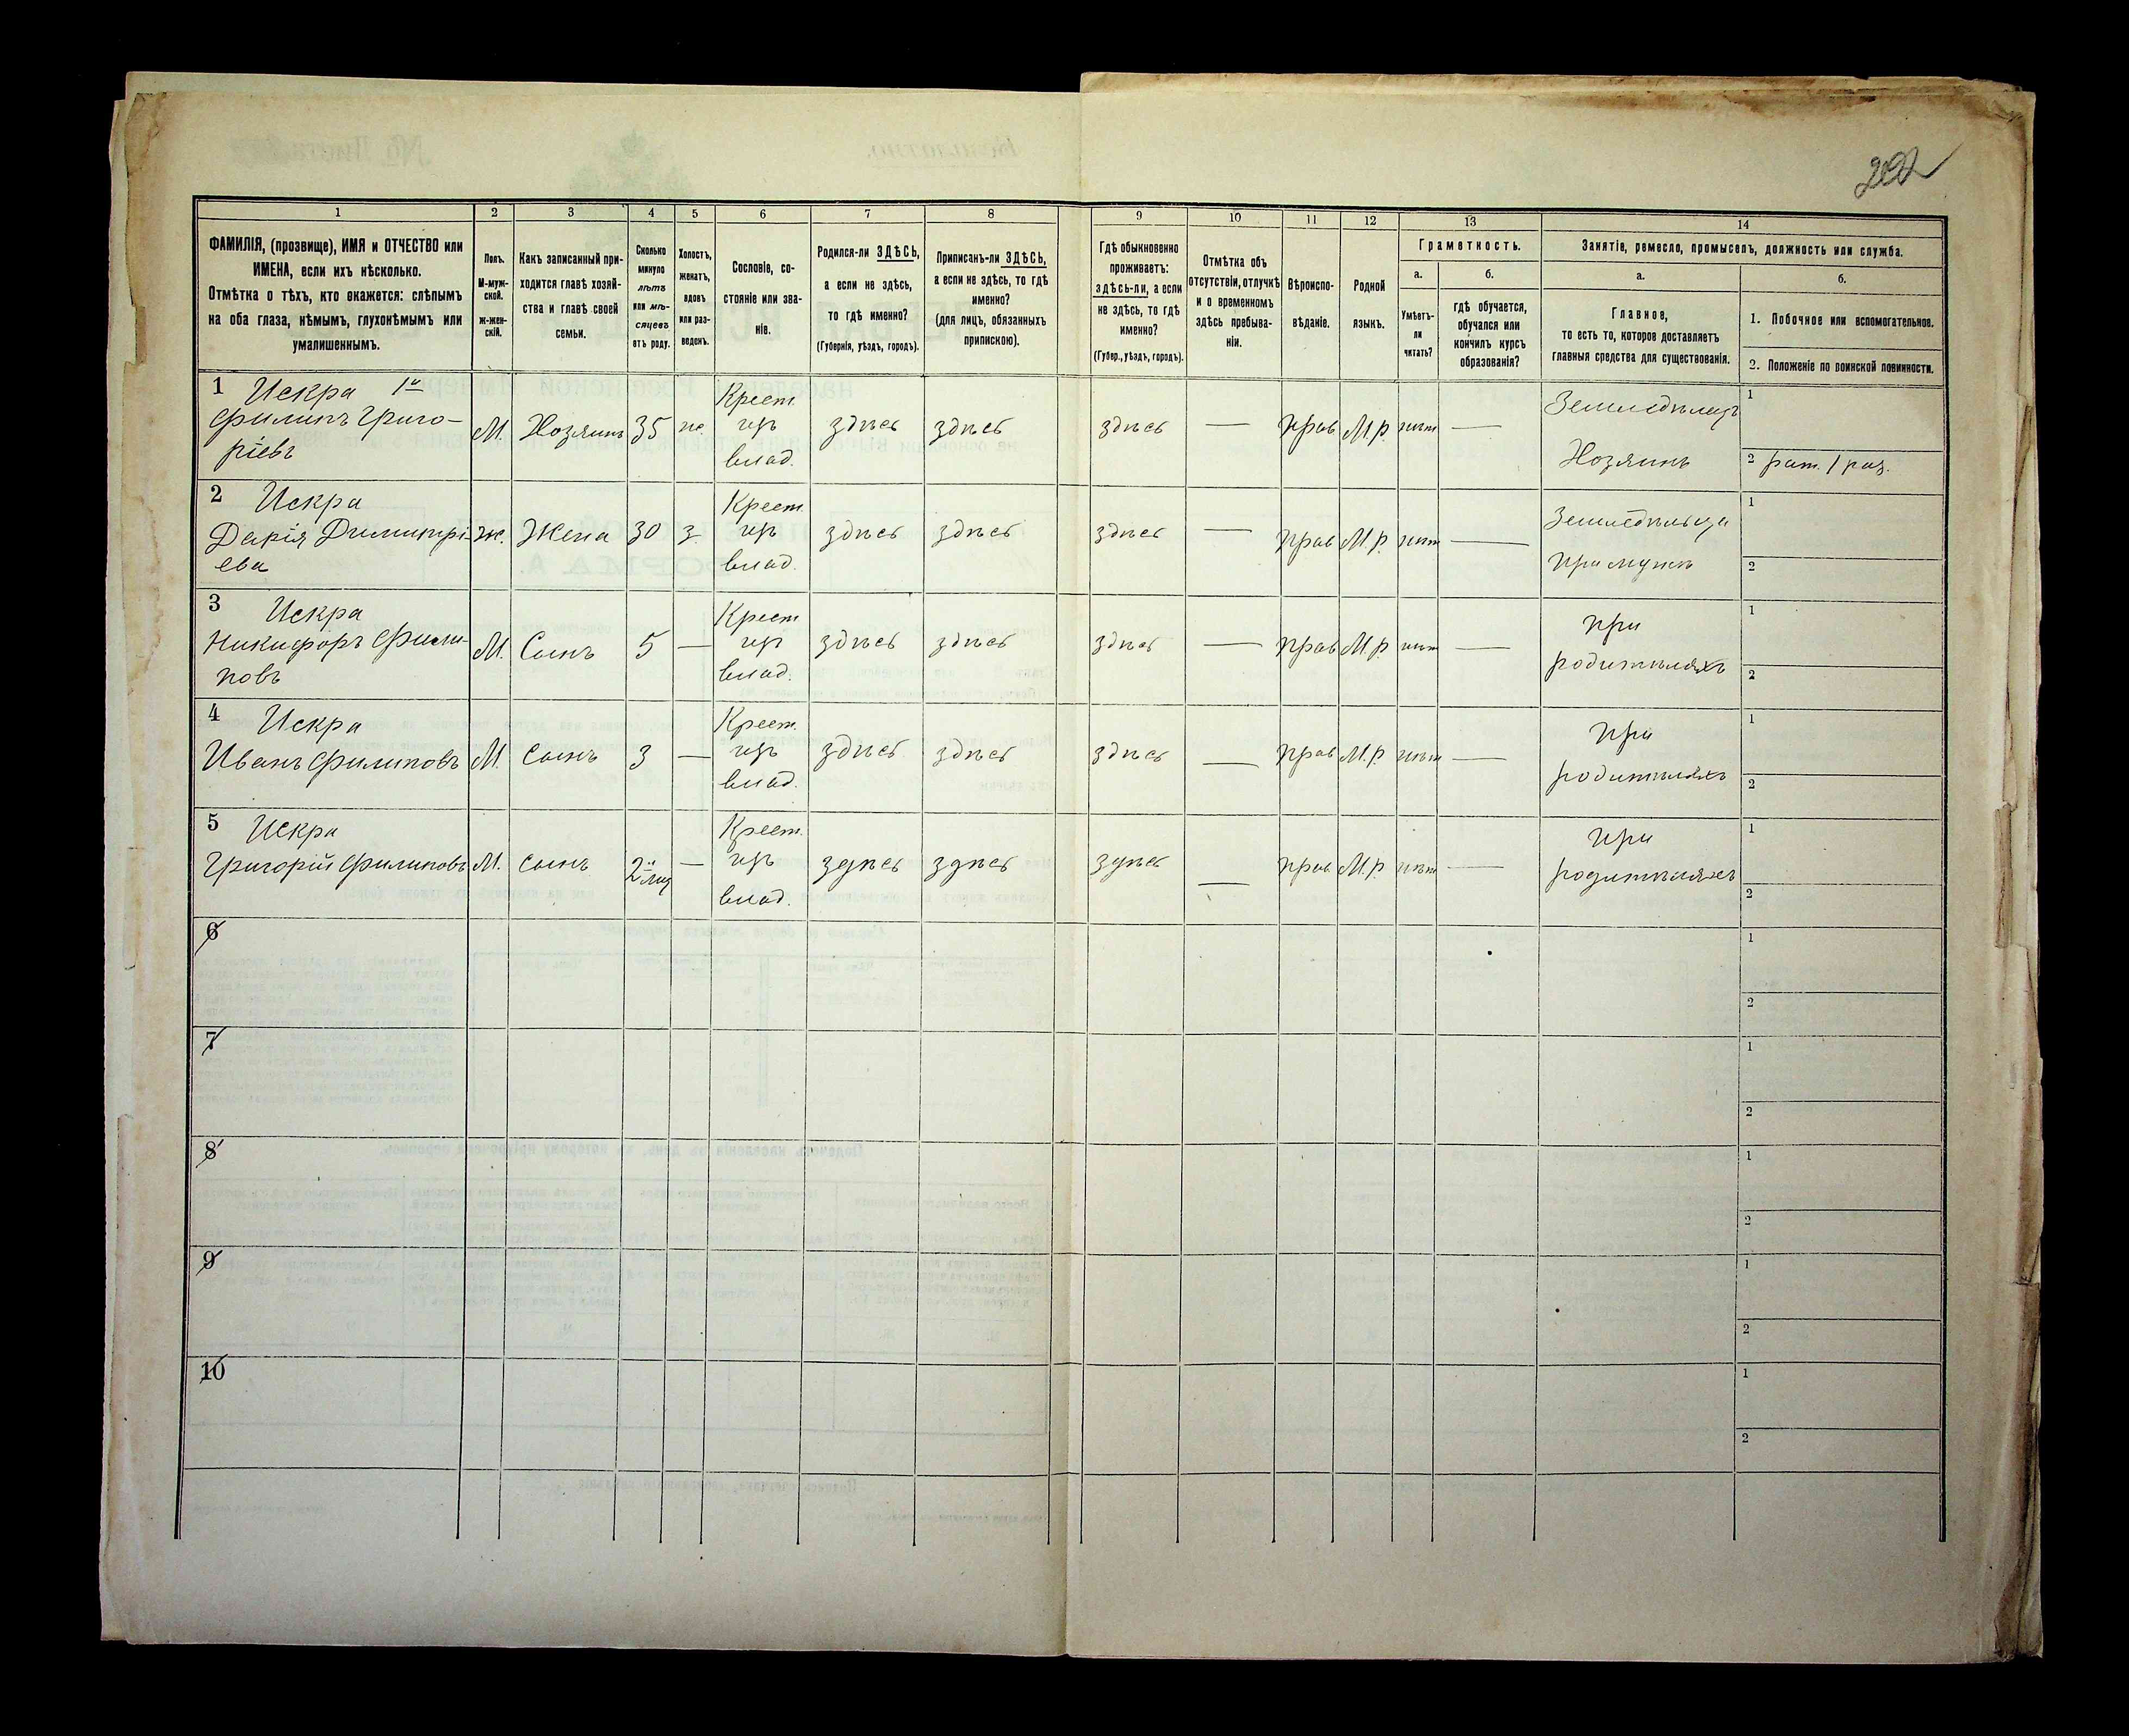 202
1 2 3 4 5 6 7 8 9 10 11 12 13 14
ФАМИЛІЯ, (прозвище), ИМЯ и ОТЧЕСТВО или
ИМЕНА, если ихъ нѣсколько.
Отмѣтка о тѣхъ, кто окажется: слѣпымъ
на оба глаза, нѣмымъ, глухонѣмымъ или
умалишеннымъ.
Полъ.
М-муж-
ской.
ж-жен-
скій.
Какъ записанный при-
ходится главѣ хозяй-
ства и главѣ своей
семьи.
Сколько
минуло
лѣтъ
или мѣ-
сяцевъ
отъ роду.
Холостъ,
женатъ,
вдовъ
или раз-
веденъ.
Сословіе, со-
стояніе или зва-
ніе.
Родился-ли ЗДѢСЬ,
а если не здѣсь,
то гдѣ именно?
(Губернія, уѣздъ, городъ).
Приписанъ-ли ЗДѢСЬ,
а если не здѣсь, то гдѣ
именно?
(для лицъ, обязанныхъ
припискою).
Гдѣ обыкновенно
проживаетъ:
здѣсь-ли, а если
не здѣсь, то гдѣ
именно?
(Губер., уѣздъ, городъ).
Отмѣтка объ
отсутствіи, отлучкѣ
и о временномъ
здѣсь пребыва-
ніи.
Вѣроиспо-
вѣданіе.
Родной
языкъ.
Грамотность.
а.
Умѣетъ-
ли
читать?
б.
гдѣ обучается,
обучался или
кончилъ курсъ
образованія?
Занятіе, ремесло, промыселъ, должность или служба.
а.
Главное,
то есть то, которое доставляетъ
главныя средства для существованія.
б.
1. Побочное или вспомогательное.
2. Положеніе по воинской повинности.
1 Искра 1й
Филипъ Григо-
ріевъ
М. Хозяинъ 35 ж.
Крест.
изъ
влад.
здѣсь здѣсь здѣсь — прав М.р. нѣт —
Земледѣлецъ
Хозяинъ
1
2 рат. 1 раз.
2 Искра
Дарія Димитрі-
ева
ж. Жена 30 з.
Крест
изъ
влад.
здѣсь здѣсь здѣсь — прав М.р. нѣт —
Земледѣльца
при мужѣ
1
2
3 Искра
Никифоръ Фили-
повъ
М. Сынъ 5 —
Крест
изъ
влад.
здѣсь здѣсь здѣсь — прав М.р. нѣт —
при
родителяхъ
1
2
4 Искра
Иванъ Филиповъ
М. сынъ 3 —
Крест.
изъ
влад.
здѣсь здѣсь здѣсь — прав М.р. нѣт —
при
родителяхъ
1
2
5 Искра
Григорій Филиповъ
М. сынъ —
Крест.
изъ
влад.
здѣсь здѣсь здѣсь — прав М.р. нѣт —
при
родителяхъ
1
2
6
1
2
7
1
2
8
1
2
9
1
2
10
1
2